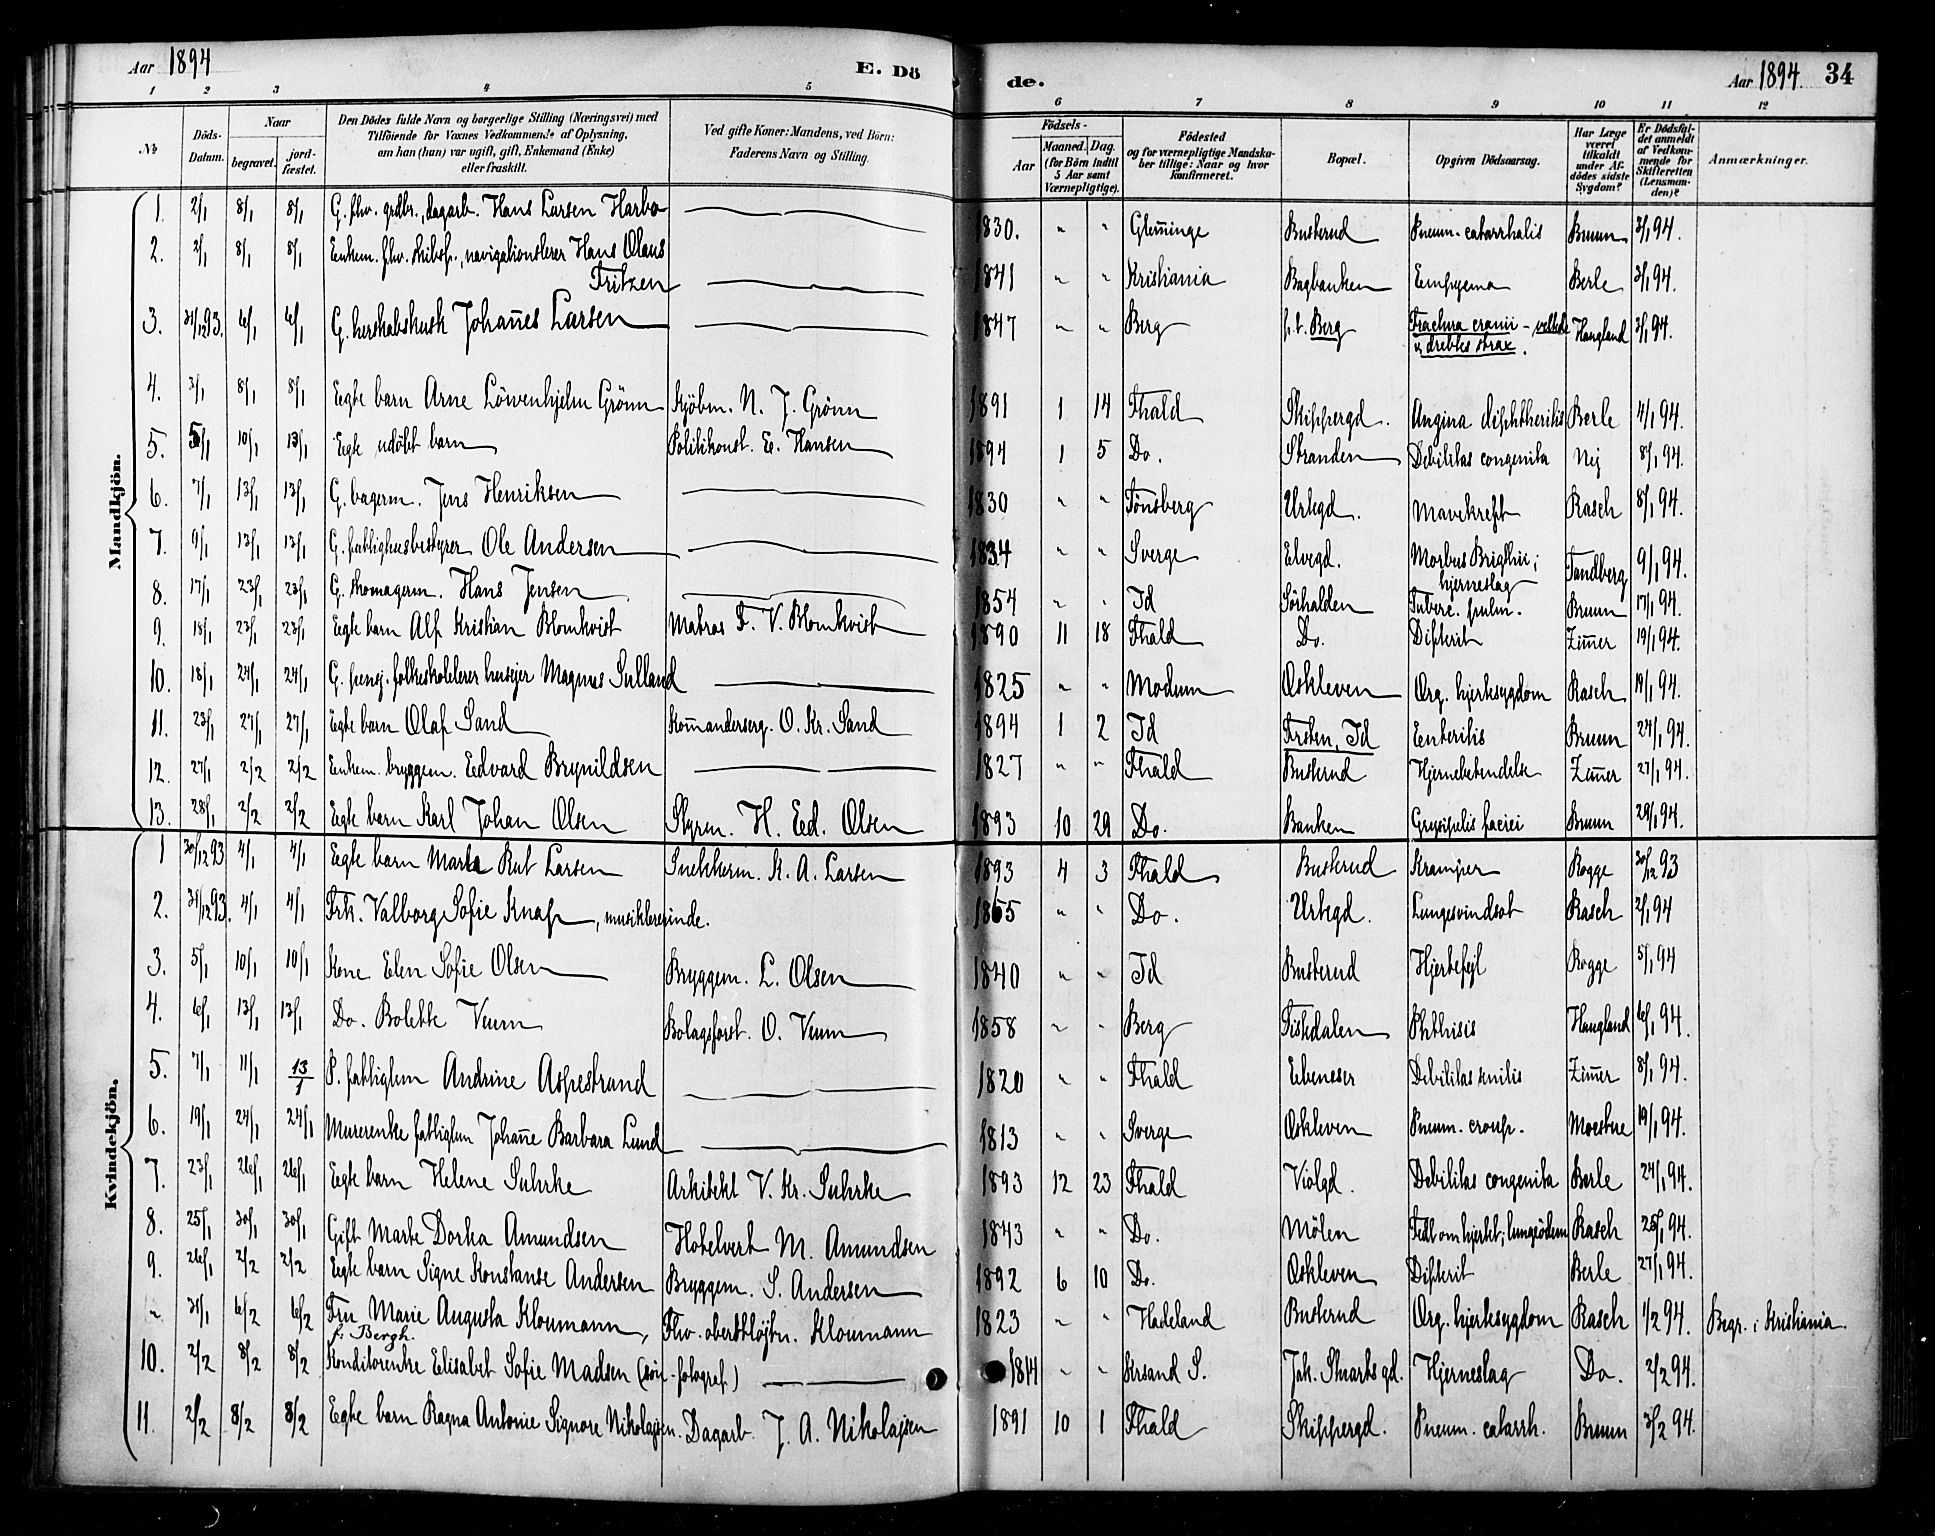 Aar 1894
E. Dö
de.
Aar 1894. 34
1 2 3 4 5 6 7 8 9 10 11 12
№
Döds-Datum.
Naar
begravet.
jord-fæstet.
Den Dödes fulde Navn og borgerlige Stilling (Næringsvei) med
Tilföiende for Voxnes Vedkommende af Oplysning,
om han (hun) var ugift, gift, Enkemand (Enke)
eller fraskilt.
Ved gifte Koner: Mandens, ved Börn:
Faderens Navn og Stilling.
Födsels-
Aar
Maaned. Dag.
(for Börn indtil
5 Aar samt
Værnepligtige).
Födested
og for værnepligtige Mandska-
ber tillige: Naar og hvor
konfirmeret.
Bopæl.
Opgiven Dödsaarsag.
Har Læge
været
tilkaldt
under Af-
dödes sidste
Sygdom?
Er Dödsfal-
det anmeldt
af Vedkom-
mende for
Skifteretten
(Lensman-
den)?
Anmærkninger.
Mandkjön.
1. 2/1 8/1 8/1 G. fhv. grdbr., dagarb. Hans Larsen Harbo 1830. " " Gleminge Busterud Pneum. catarrhalis Bruun 3/1 94.
2. 2/1 8/1 8/1 Enkem. fhv. skibsf., navigationslerer Hans Olaus
Fritzen 1841 " " Kristiania Bagbanken Empyema Berle 3/1 94.
3. 31/12 93. 6/1 6/1 G. herskabskusk Johanes Larsen 1847 " " Berg p.t. Berg Fractura cranii - veltede
& drebtes strax. Haugland 3/1 94.
4. 3/1 8/1 8/1 Egte barn Arne Löwenhjelm Grönn Kjöbm. N. J. Grönn 1891 1 14 Fhald Skippergd. Angina diphtheritis Berle 4/1 94.
5. 5/1 10/1 13/1 Egte udöbt barn Politikonst. E. Hansen 1894 1 5 Do. Stranden Debilitas congenita Nej 8/1 94.
6. 7/1 13/1 13/1 G. bagerm. Jens Henriksen 1830 " " Tönsberg Urtegd. Mavekreft Rasch 8/1 94.
7. 9/1 13/1 13/1 G. fattighusbestyrer Ole Andersen 1834 " " Sverge Elvegd. Morbus Brigthii;
hjerneslag Tandberg 9/1 94.
8. 17/1 23/1 23/1 G. skomagerm. Hans Jensen 1854 " " Id Sörhalden Tuberc. pulm. Bruun 17/1 94.
9. 18/1 23/1 23/1 Egte barn Alf Kristian Blomkvist Matros F. V. Blomkvist 1890 11 18 Fhald Do. Difterit Zimer 19/1 94.
10. 18/1 24/1 24/1 G. pensj. folkeskolelerer husejer Magnus Sulland 1825 " " Modum Oskleven Org. hjertesygdom Rasch 19/1 94.
11. 23/1 27/1 27/1 Egte barn Olaf Sand Komanderserg. O. Kr. Sand 1894 1 2 Id Id Enteritis Bruun 24/1 94.
12. 27/1 2/2 2/2 Enkem. bryggem. Edvard Brynildsen 1827 " " Fhald Busterud Hjernebetendelse Zimer 27/1 94.
13. 28/1 2/2 2/2 Egte barn Karl Johan Olsen Styrm. H. Ed. Olsen 1893 10 29 Do. Banken Erysipelis faciei Bruun 29/1 94.
Kvindekjön.
1 30/12 93 4/1 4/1 Egte barn Marta Rut Larsen Snekkerm. K. A. Larsen 1893 4 3 Fhald Busterud Kramper Rogge 30/12 93
2. 31/12 93. 4/1 4/1 Frk. Valborg Sofie Knap, musiklererinde. 1865 " " Do. Urtegd. Lungesvindsot Rasch 2/1 94
3. 5/1 10/1 10/1 Kone Elen Sofie Olsen Bryggem. L. Olsen 1840 " " Id Busterud Hjertefejl Rogge 5/1 94
4. 6/1 13/1 13/1 Do. Bolette Veum Bolagsforst. O. Veum 1858 " " Berg Fiskdalen Phthisis Haugland 6/1 94.
5. 7/1 11/1 13/1 P. fattiglem Andrine Aspestrand 1820 " " Fhald Ebeneser Debilitas senilis Zimer 8/1 94.
6. 19/1 24/1 24/1 Murerenke fattiglem Johane Barbara Lund 1813 " " Sverge Oskleven Pneum. croup. Moestue 19/1 94.
7. 23/1 26/1 26/1 Egte barn Helene Suhrke Arkitekt V. Kr. Suhrke 1893 12 23 Fhald Violgd. Debilitas congenita Berle 24/1 94.
8. 25/1 30/1 30/1 Gift Marte Dorta Amundsen Hotelvert M. Amundsen 1843 " " Do. Mölen Fedt om hjertet; lungeödem Rasch 25/1 94.
9. 26/1 2/2 2/2 Egte barn Signe Konstanse Andersen Bryggem. S. Andersen 1892 6 10 Do. Oskleven Difterit Berle 27/1 94.
" 31/1 6/2 6/2 Fru Marie Augusta Kloumann, Fhv. oberstlöjtn. Kloumann 1823 " " Hadeland Busterud Org. hjertesygdom Rasch 1/2 94. Begr. i Kristiania.
f. Bergh.
10. 2/2 8/2 8/2 Konditorenke Elisabet Sofie Madsen (sön - fotograf) 1814 " " Krsand S. Jak. Starks gd. Hjerneslag Do. 2/2 94.
11. 2/2 8/2 8/2 Egte barn Ragna Antonie Signore Nikolajsen. Dagarb. J. A. Nikolajsen 1891 10 1 Fhald Skippergd. Pneum. catarrh. Bruun 3/2 94.